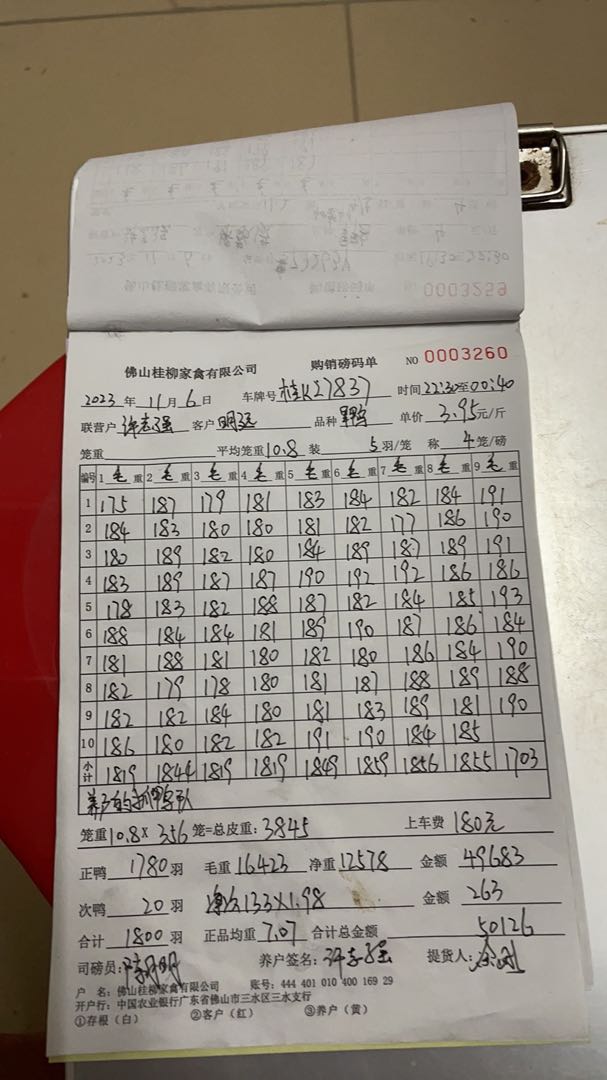 0003259
佛山桂柳家禽有限公司 购销磅码单 NO 0003260
2023 年 11 月 6 日 车牌号 桂K27837 时间 22:30至00:40
联营户 许志强 客户 明远 品种 单价 3.95 元/斤
笼重 平均笼重 10.8 装 5 羽/笼 称 4 笼/磅
编号 1 毛 重 2 毛 重 3 毛 重 4 毛 重 5 毛 重 6 毛 重 7 毛 重 8 毛 重 9 毛 重
1 175 187 179 181 183 184 182 184 191
2 184 183 180 180 181 182 177 186 190
3 180 189 182 180 184 189 187 189 191
4 183 189 187 187 190 192 192 186 186
5 178 183 182 188 187 182 184 185 193
6 188 184 184 181 189 190 187 186 184
7 181 188 181 180 182 180 186 184 190
8 182 179 178 180 181 187 188 189 188
9 182 182 184 180 181 183 189 181 190
10 186 180 182 182 191 190 184 185
小计 1819 1844 1819 1819 1849 1859 1856 1855 1703
养户自
笼重 10.8 × 356 笼=总皮重: 3845 上车费 180元
正鸭 1780 羽 毛重 16423 净重 12578 金额 49683
次鸭 20 羽 133×1.98 金额 263
合计 1800 羽 正品均重 7.07 合计总金额 50126
司磅员: 养户签名: 许志强 提货人:
户 名: 佛山桂柳家禽有限公司 账号: 444 401 010 400 169 29
开户行: 中国农业银行广东省佛山市三水区三水支行
①存根(白) ②客户(红) ③养户(黄)